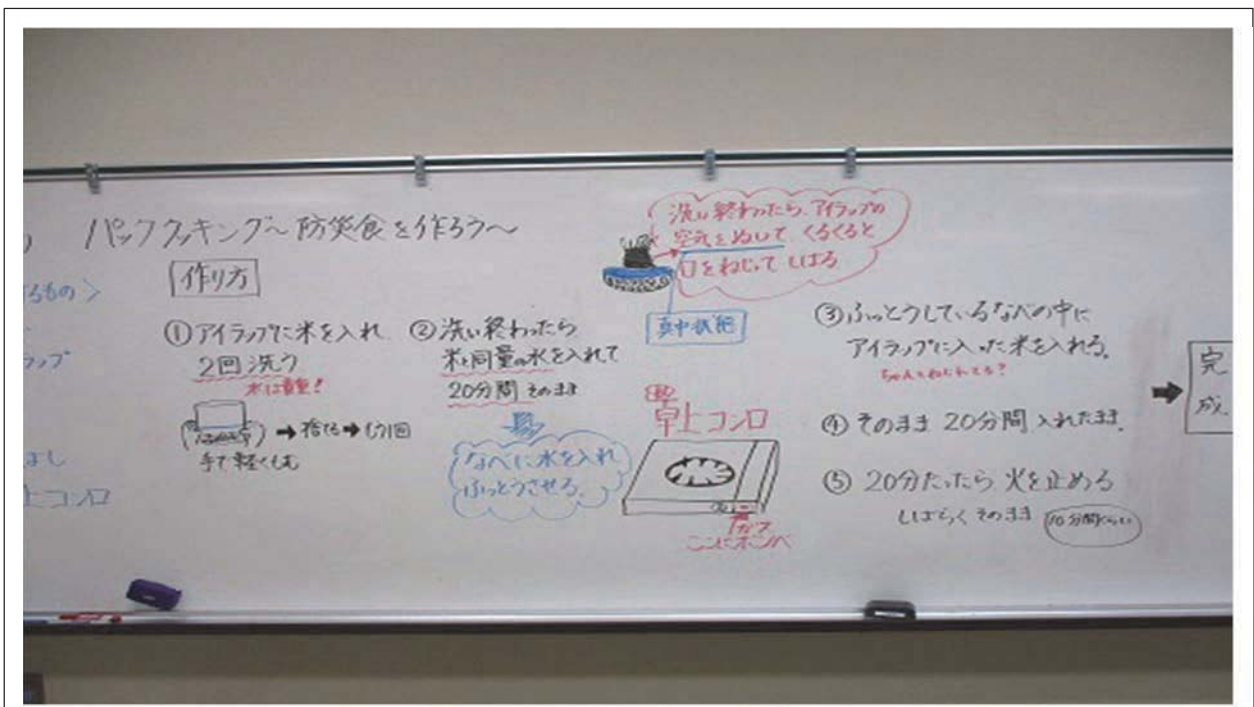 パッククッキング〜防災食を作ろう〜
作り方
るもの〉
ラップ
はし
上コンロ
①アイラップに米を入れ
2回洗う
水は貴重!
→捨てる→もう1回
手で軽くもむ
②洗い終わったら
米と同量の水を入れて
20分間 そのまま
なべに水を入れ
ふっとうさせる。
洗い終わったら、アイラップの
空気をぬいて、くるくると
口をねじって しばる
真中状態
卓上コンロ
ガス
ここにボンベ
③ふっとうしているなべの中に
アイラップに入った米を入れる。
ちゃんとねじれてる?
④そのまま 20分間 入れたまま。
⑤20分たったら 火を止める
しばらく そのまま 10分間くらい
➡
完成